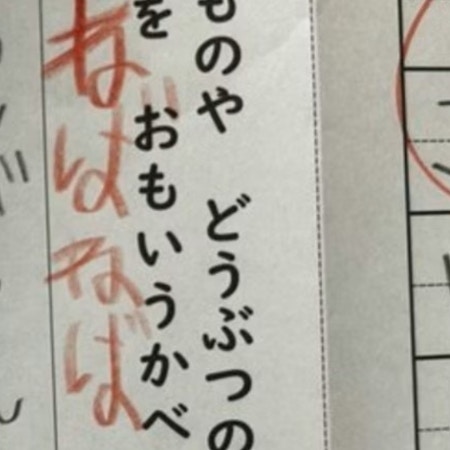 ものや どうぶつの
を おもいうかべ
ねばねば